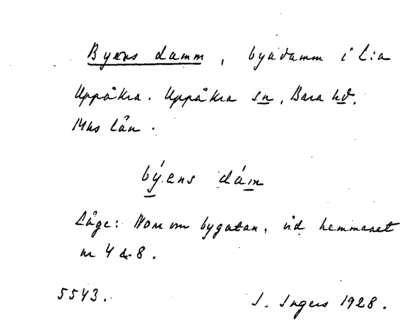 Byens damm, byadamm i L:a
Uppåkra. Uppåkra sn, Bara hd,
Mhs län.
býens dám
Läge: Norr om bygatan, vid hemmanet
nr 4 & 8.
5543. I. Ingers 1928.